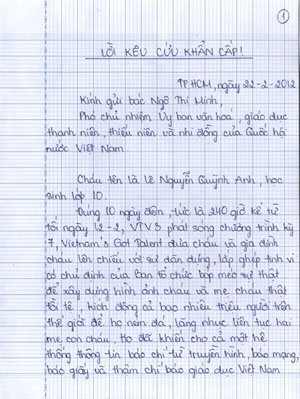 1
LỜI KÊU CỨU KHẨN CẤP!
TP HCM, ngày 22-2-2012
Kính gửi bác Ngô Thị Minh,
Phó chủ nhiệm Ủy ban văn hoá, giáo dục
thanh niên, thiếu niên và nhi đồng của Quốc hội
nước Việt Nam
Cháu tên là Lê Nguyễn Quỳnh Anh, học
sinh lớp 10.
Đúng 10 ngày đêm, tức là 240 giờ kể từ
tối ngày 12-2, VTV3 phát sóng chương trình kỳ
7, Vietnam's Got Talent đưa cháu và gia đình
cháu lên chiếu với sự dàn dựng, lắp ghép tinh vi
có chủ đinh của Ban tổ chức bóp méo sự thật
để xây dựng hình ảnh cháu và mẹ cháu thật
tồi tệ, kích động cả bao nhiêu triệu người trên
thế giới để họ ném đá, lăng nhục liên tục hai
mẹ con cháu. Họ đã khiến cho cả một hệ
thống thông tin báo chí từ truyền hình, báo mạng,
báo giấy và thậm chí báo giáo dục Việt Nam